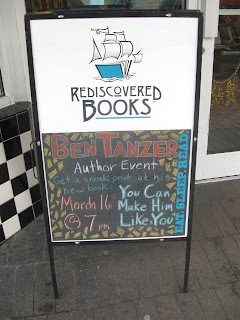 REDISCOVERED
BOOKS
BEN TANZER
Author Event
Get a sneak peak at his
new books
You Can
Make Him
Like You
March 16
@ 7 pm
EAT.SLEEP.READ.